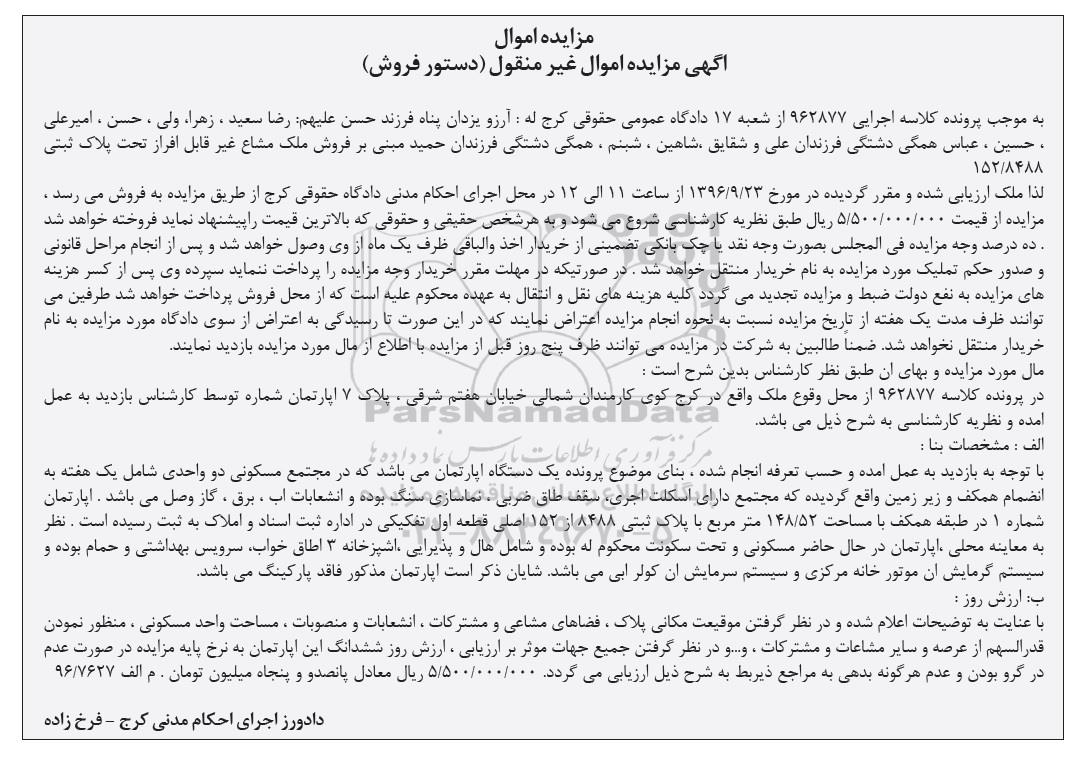 مزایده اموال
اگهی مزایده اموال غیر منقول (دستور فروش)
به موجب پرونده کلاسه اجرایی ۹۶۲۸۷۷ از شعبه ۱۷ دادگاه عمومی حقوقی کرج له : آرزو یزدان پناه فرزند حسن علیهم: رضا سعید ، زهرا، ولی ، حسن ، امیرعلی
، حسین ، عباس همگی دشتگی فرزندان علی و شقایق ،شاهین ، شبنم ، همگی دشتگی فرزندان حمید مبنی بر فروش ملک مشاع غیر قابل افراز تحت پلاک ثبتی
۱۵۲/۸۴۸۸
لذا ملک ارزیابی شده و مقرر گردیده در مورخ ۱۳۹۶/۹/۲۳ از ساعت ۱۱ الی ۱۲ در محل اجرای احکام مدنی دادگاه حقوقی کرج از طریق مزایده به فروش می رسد ،
مزایده از قیمت ۵/۵۰۰/۰۰۰/۰۰۰ ریال طبق نظریه کارشناسی شروع می شود و به هرشخص حقیقی و حقوقی که بالاترین قیمت راپیشنهاد نماید فروخته خواهد شد
. ده درصد وجه مزایده فی المجلس بصورت وجه نقد یا چک بانکی تضمینی از خریدار اخذ والباقی ظرف یک ماه از وی وصول خواهد شد و پس از انجام مراحل قانونی
و صدور حکم تملیک مورد مزایده به نام خریدار منتقل خواهد شد . در صورتیکه در مهلت مقرر خریدار وجه مزایده را پرداخت ننماید سپرده وی پس از کسر هزینه
های مزایده به نفع دولت ضبط و مزایده تجدید می گردد کلیه هزینه های نقل و انتقال به عهده محکوم علیه است که از محل فروش پرداخت خواهد شد طرفین می
توانند ظرف مدت یک هفته از تاریخ مزایده نسبت به نحوه انجام مزایده اعتراض نمایند که در این صورت تا رسیدگی به اعتراض از سوی دادگاه مورد مزایده به نام
خریدار منتقل نخواهد شد. ضمناً طالبین به شرکت در مزایده می توانند ظرف پنج روز قبل از مزایده با اطلاع از مال مورد مزایده بازدید نمایند.
مال مورد مزایده و بهای ان طبق نظر کارشناس بدین شرح است :
در پرونده کلاسه ۹۶۲۸۷۷ از محل وقوع ملک واقع در کرج کوی کارمندان شمالی خیابان هفتم شرقی ، پلاک ۷ اپارتمان شماره توسط کارشناس بازدید به عمل
امده و نظریه کارشناسی به شرح ذیل می باشد.
الف : مشخصات بنا :
با توجه به بازدید به عمل امده و حسب تعرفه انجام شده ، بنای موضوع پرونده یک دستگاه اپارتمان می باشد که در مجتمع مسکونی دو واحدی شامل یک هفته به
انضمام همکف و زیر زمین واقع گردیده که مجتمع دارای اسکلت اجری، سقف طاق ضربی ، نماسازی سنگ بوده و انشعابات اب ، برق ، گاز وصل می باشد . اپارتمان
شماره ۱ در طبقه همکف با مساحت ۱۴۸/۵۲ متر مربع با پلاک ثبتی ۸۴۸۸ از ۱۵۲ اصلی قطعه اول تفکیکی در اداره ثبت اسناد و املاک به ثبت رسیده است . نظر
به معاینه محلی ،اپارتمان در حال حاضر مسکونی و تحت سکونت محکوم له بوده و شامل هال و پذیرایی ،اشپزخانه ۳ اطاق خواب، سرویس بهداشتی و حمام بوده و
سیستم گرمایش ان موتور خانه مرکزی و سیستم سرمایش ان کولر ابی می باشد. شایان ذکر است اپارتمان مذکور فاقد پارکینگ می باشد.
ب: ارزش روز :
با عنایت به توضیحات اعلام شده و در نظر گرفتن موقیعت مکانی پلاک ، فضاهای مشاعی و مشترکات ، انشعابات و منصوبات ، مساحت واحد مسکونی ، منظور نمودن
قدرالسهم از عرصه و سایر مشاعات و مشترکات ، و...و در نظر گرفتن جمیع جهات موثر بر ارزیابی ، ارزش روز ششدانگ این اپارتمان به نرخ پایه مزایده در صورت عدم
در گرو بودن و عدم هرگونه بدهی به مراجع ذیربط به شرح ذیل ارزیابی می گردد. ۵/۵۰۰/۰۰۰/۰۰۰ ریال معادل پانصدو و پنجاه میلیون تومان . م الف ۹۶/۷۶۲۷
دادورز اجرای احکام مدنی کرج - فرخ زاده
ParsNamadData
مرکز فرآوری اطلاعات پارس نماد داده ها
۰۲۱-۸۸۳۴۹۶۷۰-۵